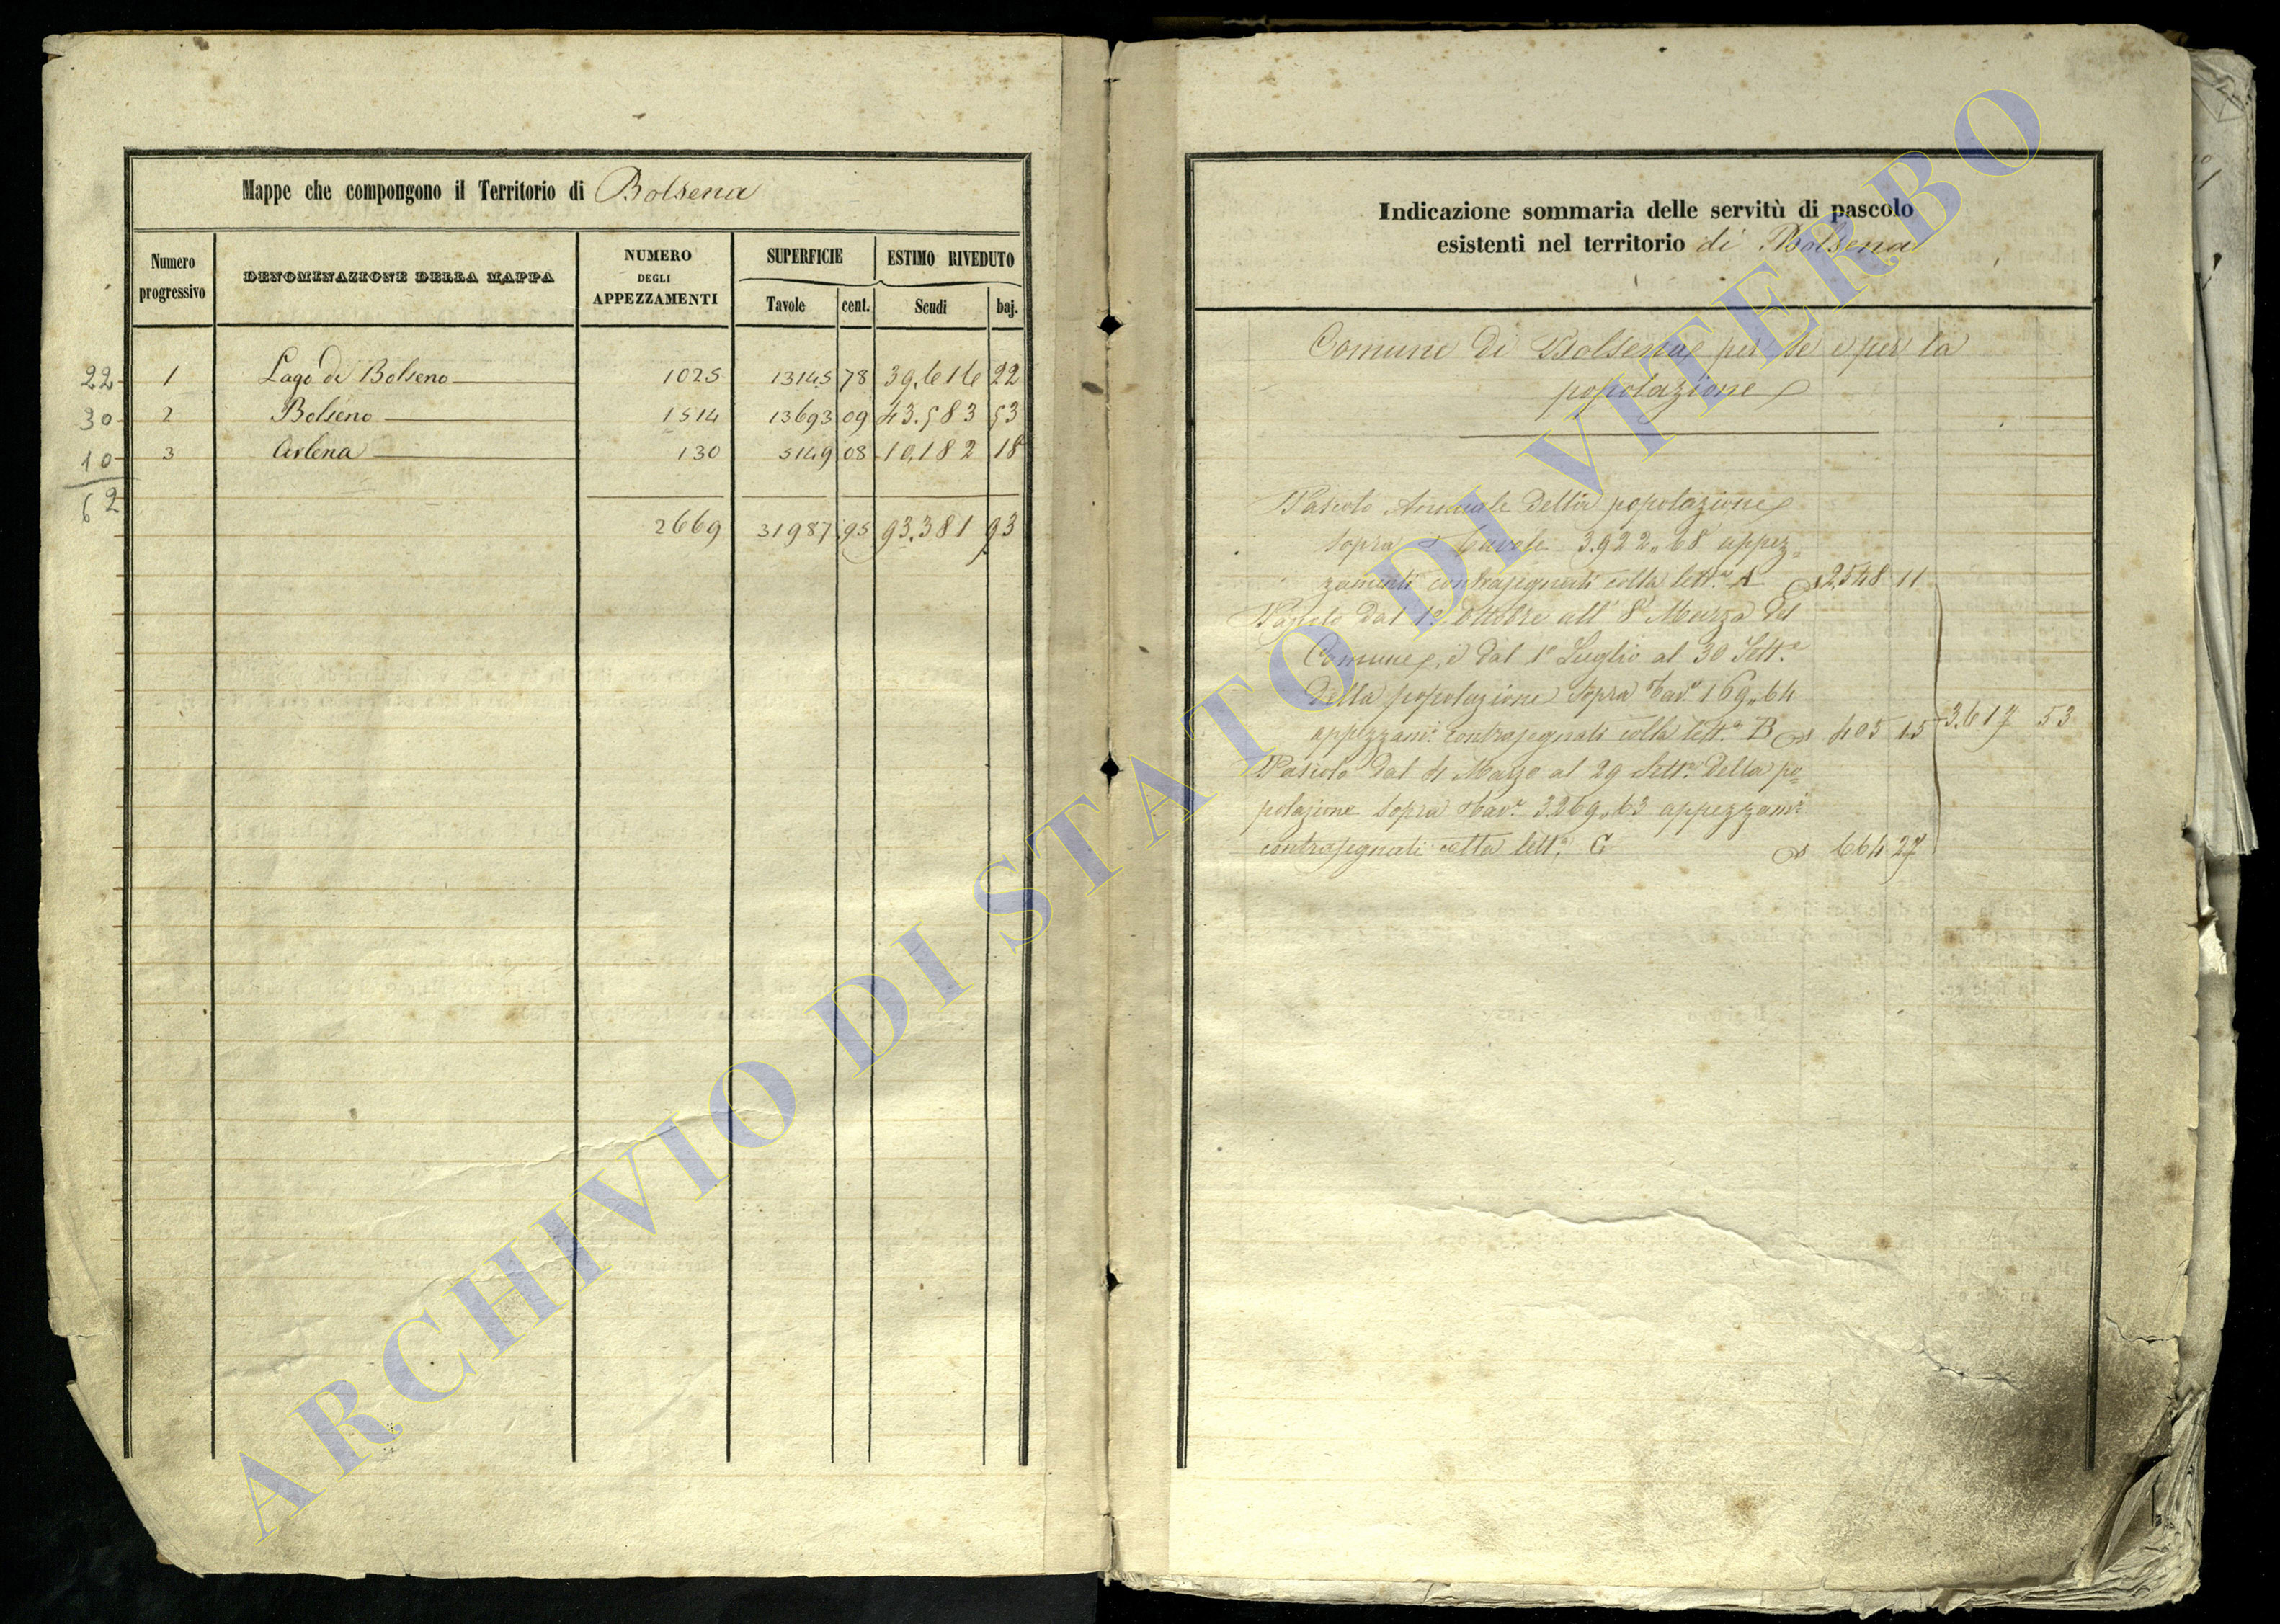 Mappe che compongono il Territorio di Bolsena
Numero progressivo
DENOMINAZIONE DELLA MAPPA
NUMERO DEGLI APPEZZAMENTI
SUPERFICIE
ESTIMO RIVEDUTO
Tavole cent. Scudi baj.
22 1 Lago di Bolseno 1025 13145 78 39,616 22
30 2 Bolseno 1514 13693 09 43.583 53
10 3 Arlena 130 5149 08 10,182 18
62
2669 31987 95 93.381 93
Indicazione sommaria delle servitù di pascolo
esistenti nel territorio di Bolsena
Comune di Bolsena per se e per la
popolazione
Pascolo Annuale della popolazione
sopra Tavole 3.922,,68 appez=
zamenti contrasegnati colla lett.a A 2548 11
Pascolo dal 1° Ottobre all' 8 Marzo del
Comune, e dal 1° Luglio al 30 Sett.e
della popolazione sopra Tav.e 169,,64
appezzam.i contrasegnati colla lett.a B 405 15 3.617 53
Pascolo dal 4 Marzo al 29 Sett.e della po=
polazione sopra Tav.e 3269,,63 appezzam.i
contrasegnati colla lett.a C 664 27
ARCHIVIO DI STATO DI VITERBO